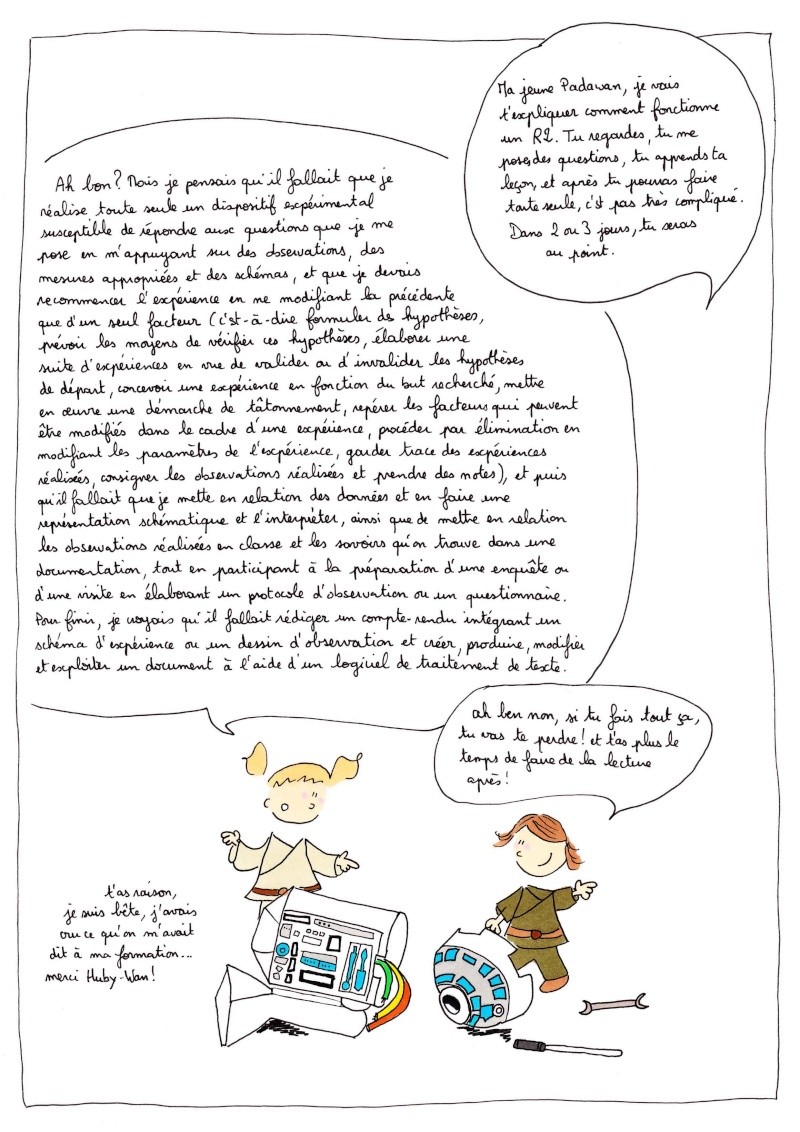 Ma jeune Padawan, je vais
t'expliquer comment fonctionne
un R2. Tu regardes, tu me
poses des questions, tu apprends ta
leçon, et après tu pourras faire
toute seule, c'est pas très compliqué.
Dans 2 ou 3 jours, tu seras
au point.
Ah bon? Mais je pensais qu'il fallait que je
réalise toute seule un dispositif expérimental
susceptible de répondre aux questions que je me
pose en m'appuyant sur des observations, des
mesures appropriées et des schémas, et que je devais
recommencer l'expérience en ne modifiant la précédente
que d'un seul facteur (c'est-à-dire formuler des hypothèses,
prévoir les moyens de vérifier ces hypothèses, élaborer une
suite d'expériences en vue de valider ou d'invalider les hypothèses
de départ, concevoir une expérience en fonction du but recherché, mettre
en œuvre une démarche de tâtonnement, repérer les facteurs qui peuvent
être modifiés dans le cadre d'une expérience, procéder par élimination en
modifiant les paramètres de l'expérience, garder trace des expériences
réalisées, consigner les observations réalisées et prendre des notes), et puis
qu'il fallait que je mette en relation des données et en faire une
représentation schématique et l'interpréter, ainsi que de mettre en relation
les observations réalisées en classe et les savoirs qu'on trouve dans une
documentation, tout en participant à la préparation d'une enquête ou
d'une visite en élaborant un protocole d'observation ou un questionnaire.
Pour finir, je croyais qu'il fallait rédiger un compte-rendu intégrant un
schéma d'expérience ou un dessin d'observation et créer, produire, modifier
et exploiter un document à l'aide d'un logiciel de traitement de texte.
ah ben non, si tu fais tout ça,
tu vas te perdre! et t'as plus le
temps de faire de la lecture
après!
t'as raison,
je suis bête, j'avais
cru ce qu'on m'avait
dit à ma formation...
merci Huby-Wan!